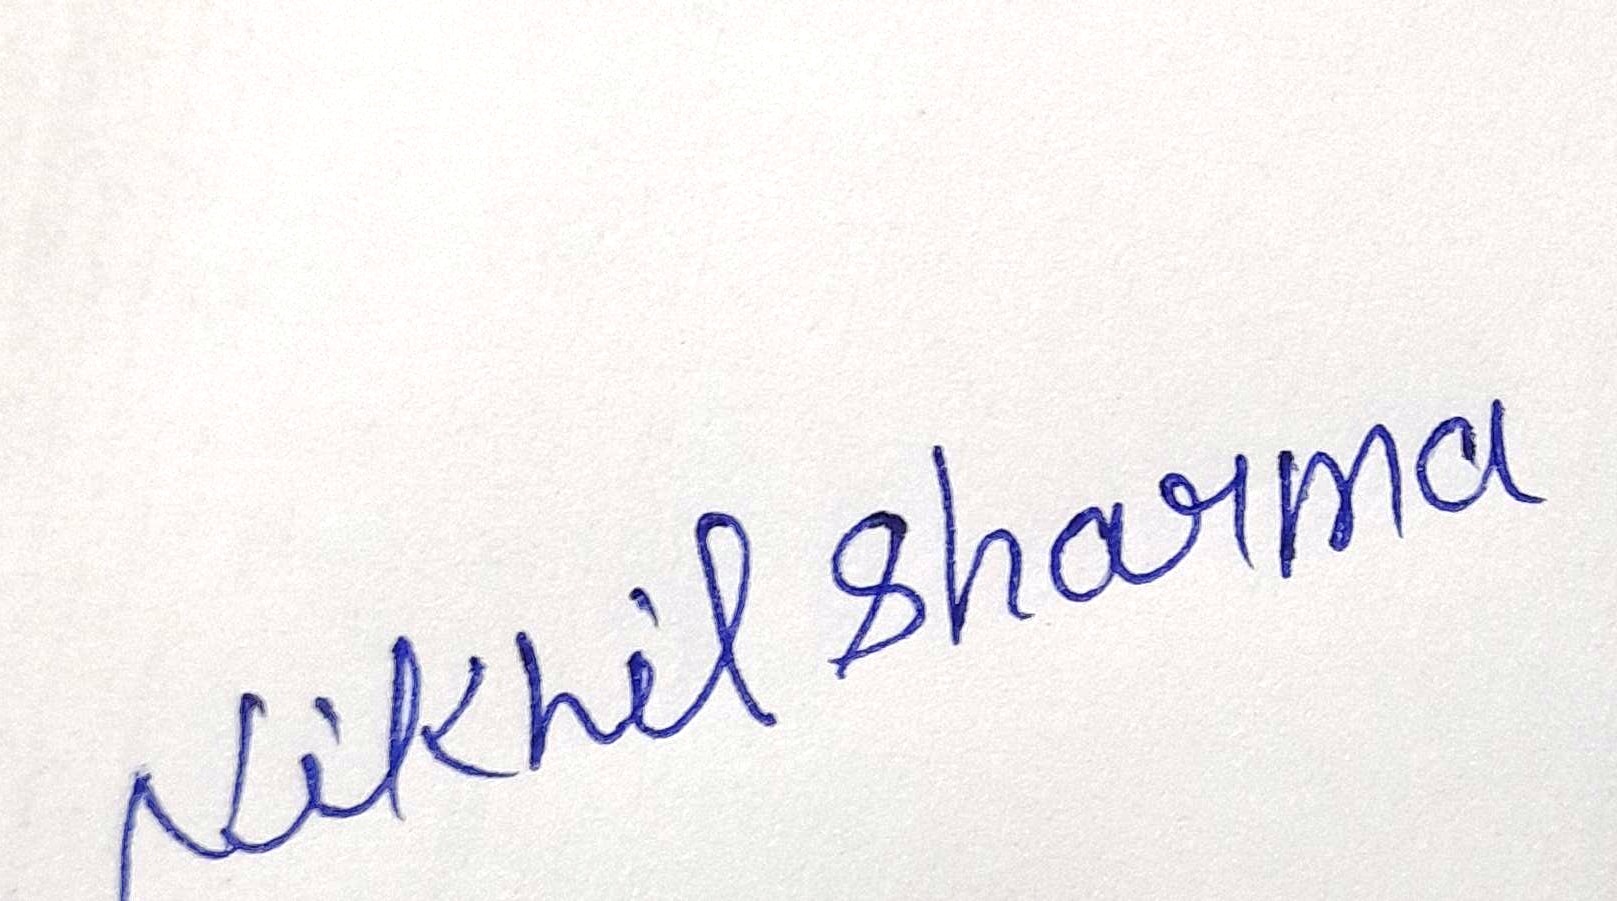 Nikhil Sharma